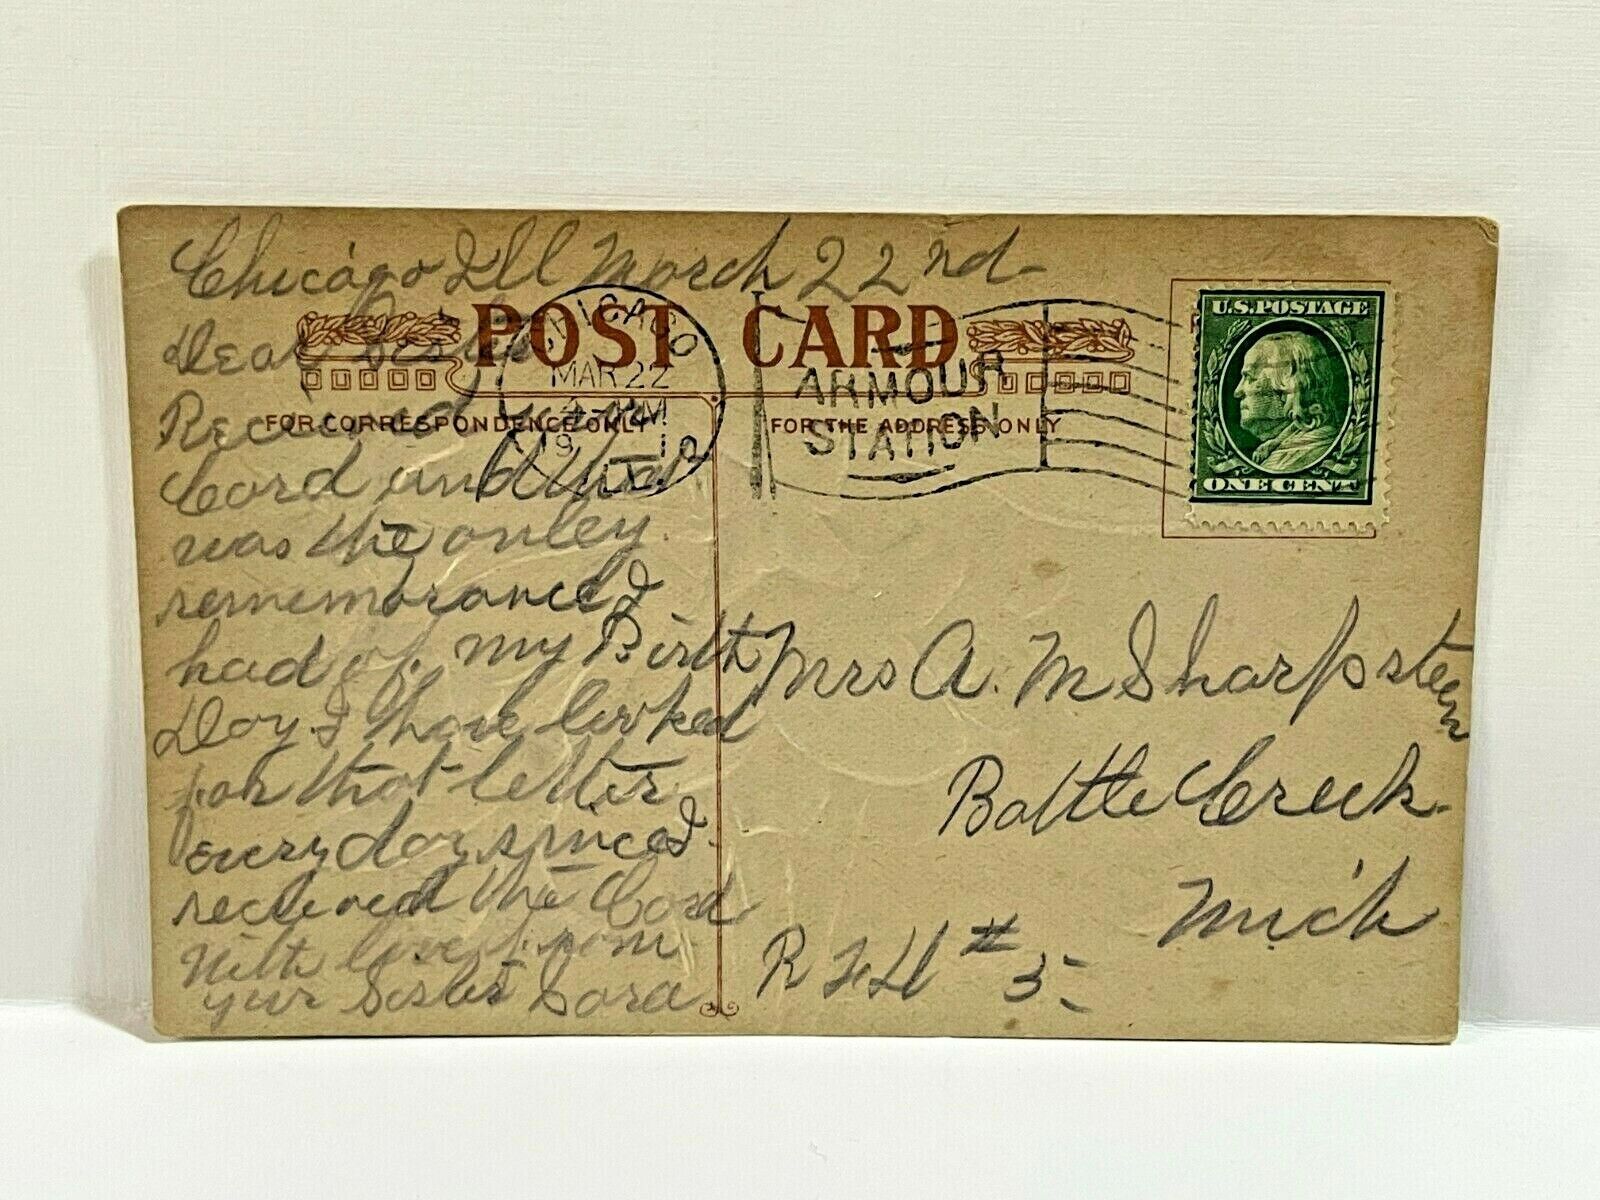 Chicago Ill March 22nd
Dear Sister
Received your
Card and that
was the onley
remembrance I
had of my Birth
Day I have looked
for that letter
every day since I
recieved the Card
With love from
your Sister Cora
POST CARD
FOR CORRESPONDENCE ONLY
FOR THE ADDRESS ONLY
CHICAGO
MAR 22
4-PM
1910
ILL
ARMOUR
STATION
U.S. POSTAGE
ONE CENT
Mrs A. M Sharpsteen
Battle Creek
Mich
R F D # 3